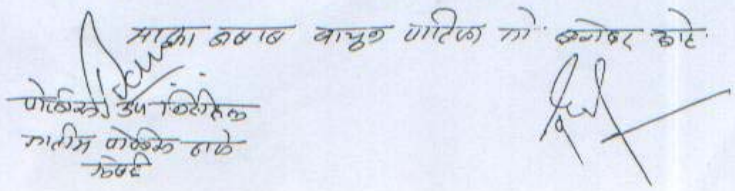 माझा जबाब वाचुन पाहिला तो बरोबर आहे.
पोलिस उप निरिक्षक
पोलिस ठाणे
मुंबई